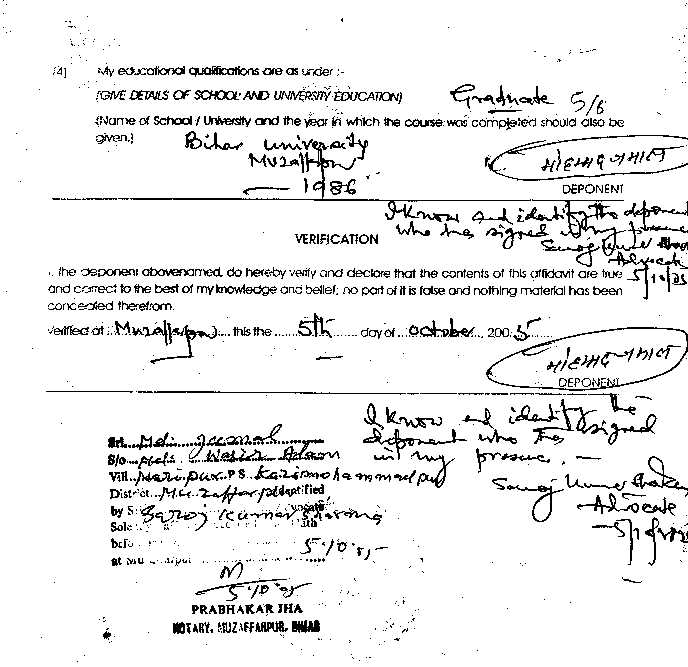 [4] My educational qualifications are as under :-
(GIVE DETAILS OF SCHOOL AND UNIVERSITY EDUCATION) Graduate
(Name of School / University and the year in which the course was completed should also be
given.) Bihar University
Muzaffarpur
— 1986
DEPONENT
I know and identify the deponent
who has signed in my presence
Advocate
5/10/05
VERIFICATION
I, the deponent abovenamed, do hereby verify and declare that the contents of this affidavit are true
and correct to the best of my knowledge and belief; no part of it is false and nothing material has been
concealed therefrom.
Verified at Muzaffarpur this the 5th day of October 2005
DEPONENT
I know and identify the
deponent who has signed
in my presence. —
Advocate
Sri. Md. Jasmal
S/o
Vill. Haripur P.S. Karimohammadpur
District Muzaffarpur Identified
by S. Saroj Kumar Sharma
Sole
befo
5.10.05
at Mu
5.10.05
PRABHAKAR JHA
NOTARY, MUZAFFARPUR, BIHAR